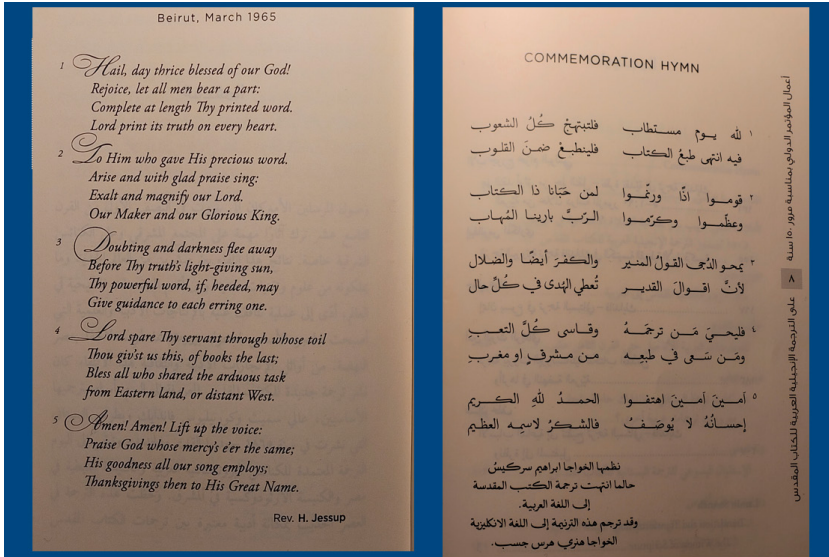 Beirut, March 1965
1 Hail, day thrice blessed of our God!
Rejoice, let all men bear a part:
Complete at length Thy printed word.
Lord print its truth on every heart.
2 To Him who gave His precious word.
Arise and with glad praise sing:
Exalt and magnify our Lord.
Our Maker and our Glorious King.
3 Doubting and darkness flee away
Before Thy truth's light-giving sun,
Thy powerful word, if, heeded, may
Give guidance to each erring one.
4 Lord spare Thy servant through whose toil
Thou giv'st us this, of books the last;
Bless all who shared the arduous task
from Eastern land, or distant West.
5 Amen! Amen! Lift up the voice:
Praise God whose mercy's e'er the same;
His goodness all our song employs;
Thanksgivings then to His Great Name.
Rev. H. Jessup
COMMEMORATION HYMN
١ لله يوم مستطاب فلتبتهجْ كُلُ الشعوب
فيه انتهى طبعُ الكتاب فلينطبعْ ضمنَ القلوب
٢ قوموا اذًا ورنّموا لمن حَبَانا ذا الكتاب
وعظّموا وكرّموا الربَّ بارينا المُهاب
٣ يمحو الدُجى القولُ المنير والكفرَ أيضًا والضلال
لأنَّ اقوالَ القدير تُعطي الهُدى في كُلِّ حال
٤ فليحيَ مَن ترجمَهُ وقاسى كُلَّ التعبِ
ومَن سَعى في طبعِه من مشرقٍ او مغربِ
٥ آمينَ آمينَ اهتفوا الحمدُ للهِ الكريم
إحسانُهُ لا يُوصَفُ فالشكرُ لاسمِه العظيم
نظمها الخواجا ابراهيم سركيس
حالما انتهت ترجمة الكتب المقدسة
إلى اللغة العربية.
وقد ترجم هذه الترنيمة إلى اللغة الانكليزية
الخواجا هنري هرس جسب.
أعمال المؤتمر الدولي بمناسبة مرور ١٥٠ سنة
٨
على الترجمة الإنجيلية العربية للكتاب المقدس